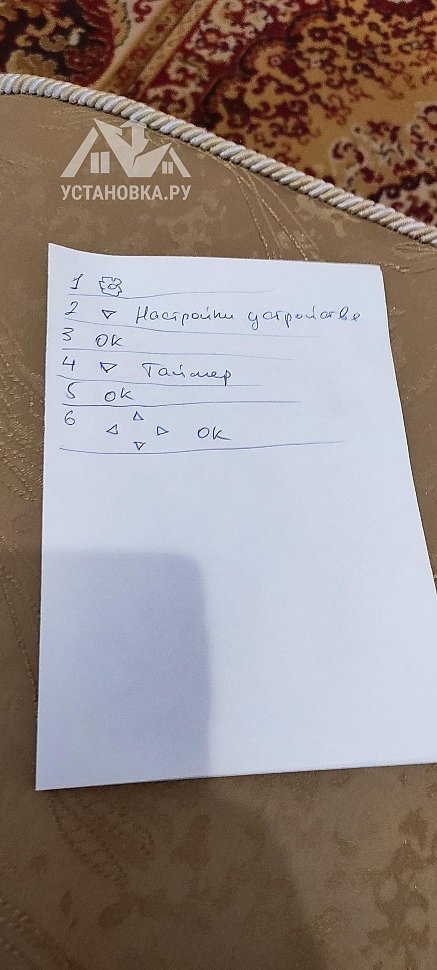 УСТАНОВКА.РУ
1
2 ▽ Настройки устройства
3 ОК
4 ▽ Таймер
5 ОК
6 △ ◁ ▷ ▽ ОК